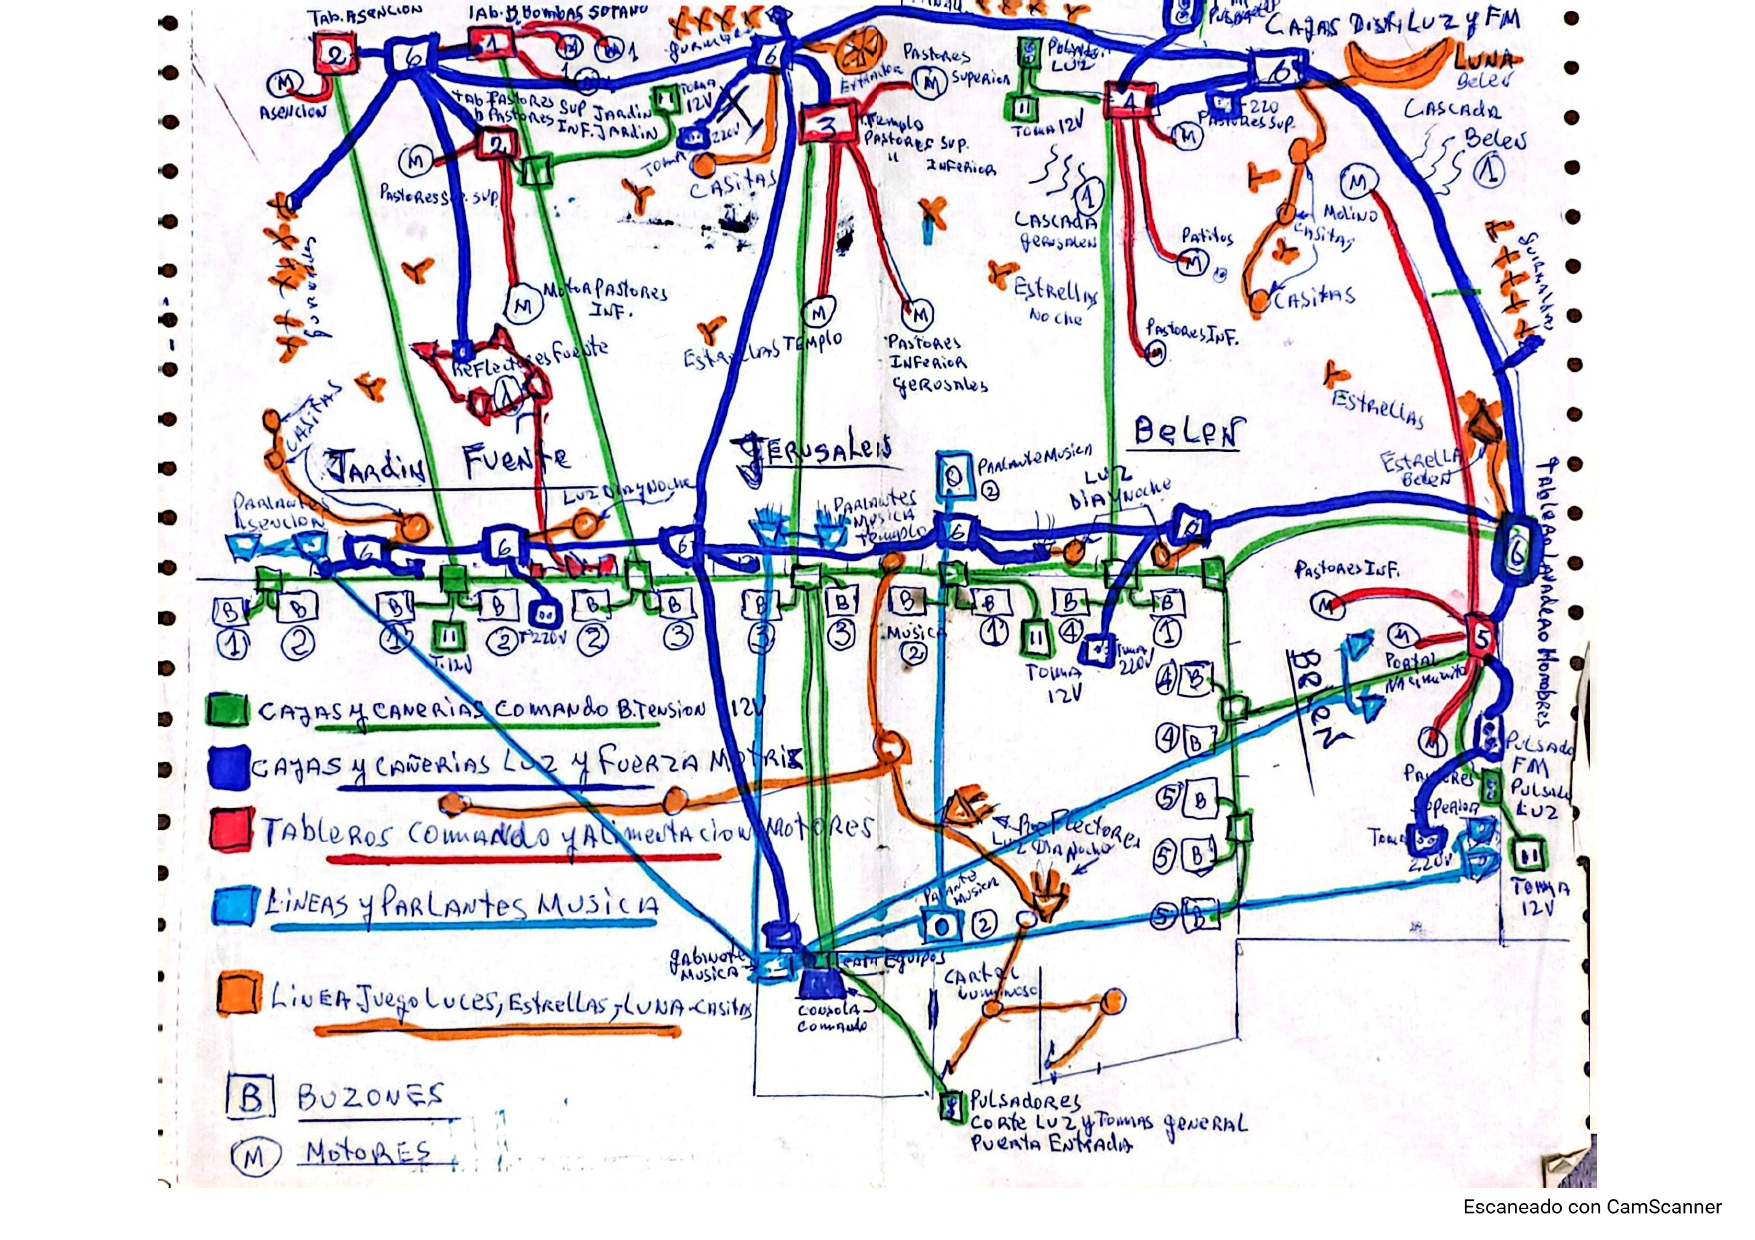 TAB. ASENCION
TAB. B. BOMBAS SOTANO
CAJAS DIST. LUZ y FM
2
6
1
M
M 1
6
PULSADOR LUZ
6
LUNA
BELEN
M
ASENCION
TAB PASTORES SUP JARDIN
PASTORES INF. JARDIN
TOMA
12V
220V
TOMA
PASTORES
SUPERIOR
M
3
TEMPLO
PASTORES SUP.
" INFERIOR
TOMA 12V
4
220
PASTORES SUP.
CASCADA
BELEN
1
M
2
PASTORES SUP.
CASITAS
M
1
CASCADA
GERUSALEN
M
MOLINO
CASITAS
PATITOS
M
M
MOTOR PASTORES
INF.
ESTRELLAS
NOCHE
CASITAS
GUIRNALDAS
M
M
ESTRELLAS TEMPLO
PASTORES
INFERIOR
GEROSALES
PASTORES INF.
M
REFLECTORES FUENTE
1
ESTRELLAS
CASITAS
JARDIN
FUENTE
JERUSALEN
BELEN
ESTRELLA
BELEN
LUZ DIA y NOCHE
PARLANTE MUSICA
2
LUZ
DIA y NOCHE
PARLANTES
ASENCION
PARLANTES
MUSICA
TEMPLO
6
6
6
6
6
6
PASTORES INF.
M
B B B B B B B B B B B B
1 2 1 2 2 3 3 3 1 4 1
T. 12V
T 220V
MUSICA
2
TOMA
12V
TOMA
220V
5
M
PORTAL
M
BELEN
4 B
4 B
5 B
5 B
5 B
CAJAS y CAÑERIAS COMANDO B. TENSION 12V
CAJAS y CAÑERIAS LUZ y FUERZA MOTRIZ
TABLEROS COMANDO y ALIMENTACION MOTORES
LINEAS y PARLANTES MUSICA
LINEA JUEGO LUCES, ESTRELLAS, LUNA - CASITAS
B BUZONES
M MOTORES
REFLECTORES
LUZ DIA NOCHE
2
GABINETE
MUSICA
EQUIPOS
CONSOLA
COMANDO
CARTEL
LUMINOSO
PULSADOR
FM
PULSADOR
LUZ
TOMA
220V
TOMA
12V
PULSADORES
CORTE LUZ y TOMAS GENERAL
PUERTA ENTRADA
Escaneado con CamScanner